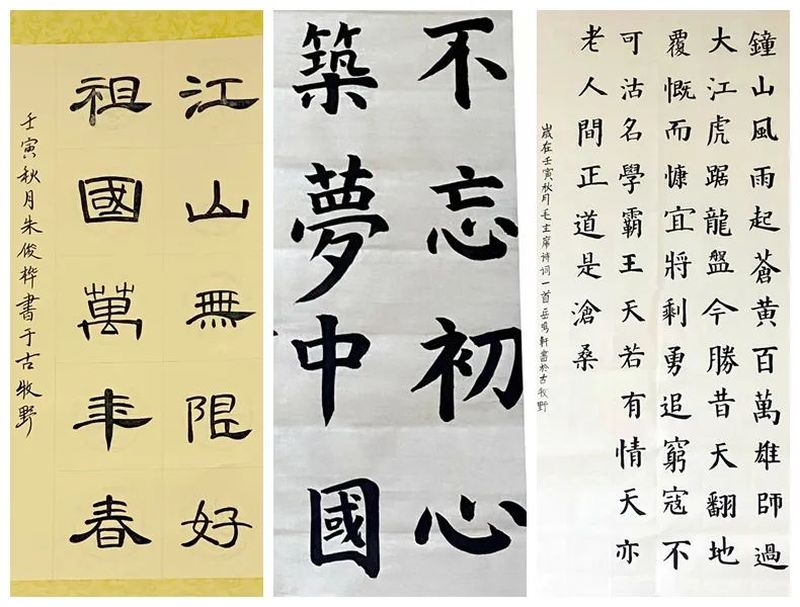 江山無限好
祖國萬年春
壬寅秋月朱俊桦書于古牧野
不忘初心
築夢中國
鐘山風雨起蒼黄百萬雄師過
大江虎踞龍盤今勝昔天翻地
覆慨而慷宜將剩勇追窮寇不
可沽名學霸王天若有情天亦
老人間正道是滄桑
歲在壬寅秋月毛主席诗词一首岳鸣軒書於古牧野